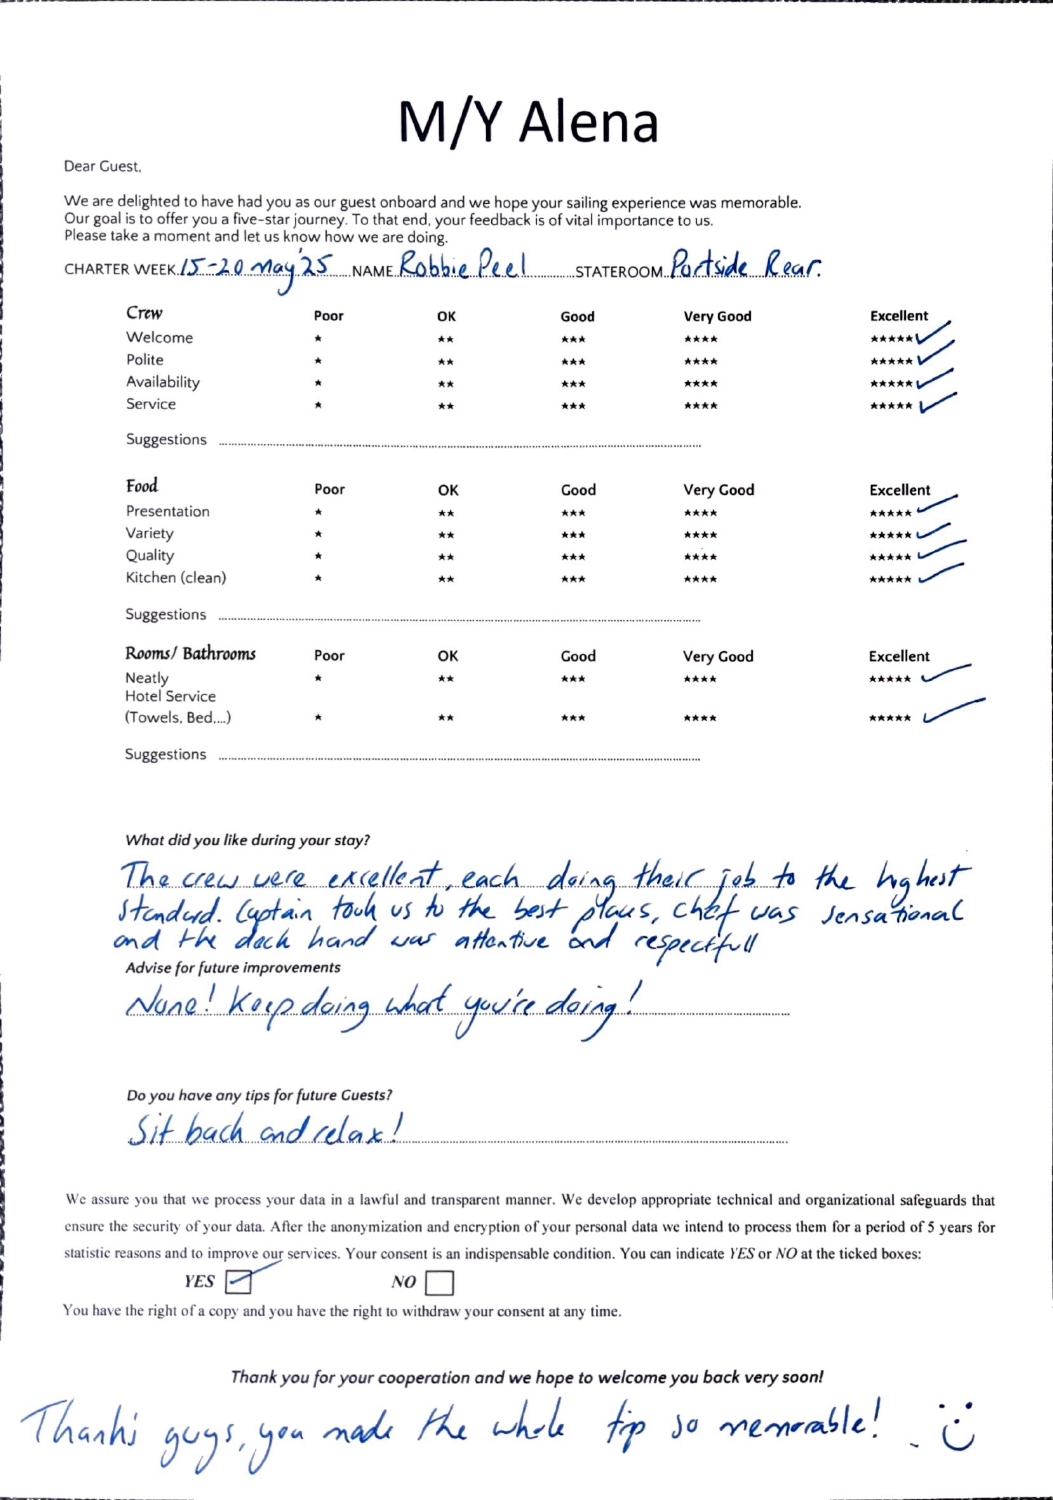 M/Y Alena
Dear Guest,
We are delighted to have had you as our guest onboard and we hope your sailing experience was memorable.
Our goal is to offer you a five-star journey. To that end, your feedback is of vital importance to us.
Please take a moment and let us know how we are doing.
CHARTER WEEK 15-20 May '25 NAME Robbie Peel STATEROOM Portside Rear.
Crew Poor OK Good Very Good Excellent
Welcome * ** *** **** ***** ✓
Polite * ** *** **** ***** ✓
Availability * ** *** **** ***** ✓
Service * ** *** **** ***** ✓
Suggestions
Food Poor OK Good Very Good Excellent
Presentation * ** *** **** ***** ✓
Variety * ** *** **** ***** ✓
Quality * ** *** **** ***** ✓
Kitchen (clean) * ** *** **** ***** ✓
Suggestions
Rooms/ Bathrooms Poor OK Good Very Good Excellent
Neatly * ** *** **** ***** ✓
Hotel Service
(Towels, Bed,...) * ** *** **** ***** ✓
Suggestions
What did you like during your stay?
The crew were excellent, each doing their job to the highest
standard. Captain took us to the best places, chef was sensational
and the deck hand was attentive and respectfull
Advise for future improvements
None! Keep doing what you're doing!
Do you have any tips for future Guests?
Sit back and relax!
We assure you that we process your data in a lawful and transparent manner. We develop appropriate technical and organizational safeguards that
ensure the security of your data. After the anonymization and encryption of your personal data we intend to process them for a period of 5 years for
statistic reasons and to improve our services. Your consent is an indispensable condition. You can indicate YES or NO at the ticked boxes:
YES ☑ NO ☐
You have the right of a copy and you have the right to withdraw your consent at any time.
Thank you for your cooperation and we hope to welcome you back very soon!
Thanks guys, you made the whole trip so memorable! :)